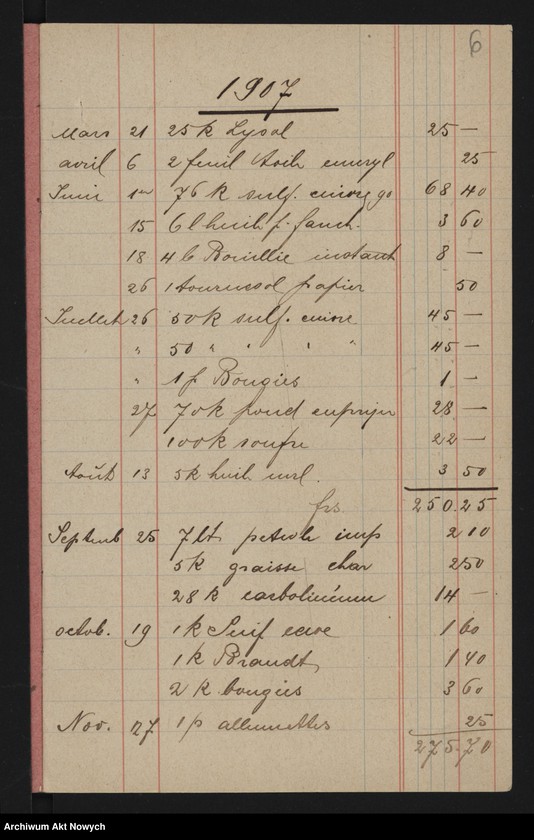 6
1907
Mars 21 25 k Lysol 25 —
avril 6 2 feuil toile emeryl 25
Juin 1er 76 k sulf. cuivre 90 68 40
15 6 l huile p. fauch. 3 60
18 4 b Bouillie instant 8 —
26 1 tournesol papier 50
Juillet 26 50 k sulf. cuivre 45 —
" 50 " " " " 45 —
" 1 p Bougies 1 —
27 70 k poud cuprique 28 —
100 k soufre 22 —
Août 13 5 k huile 3 50
frs. 250.25
Septemb 25 7 lt petrole imp 2 10
5 k graisse char 2 50
28 k carbolineum 14 —
octob. 19 1 k Suif 1 60
1 k Brandt 1 40
2 k bougies 3 60
Nov. 27 1 p allumettes 25
275.70
Archiwum Akt Nowych